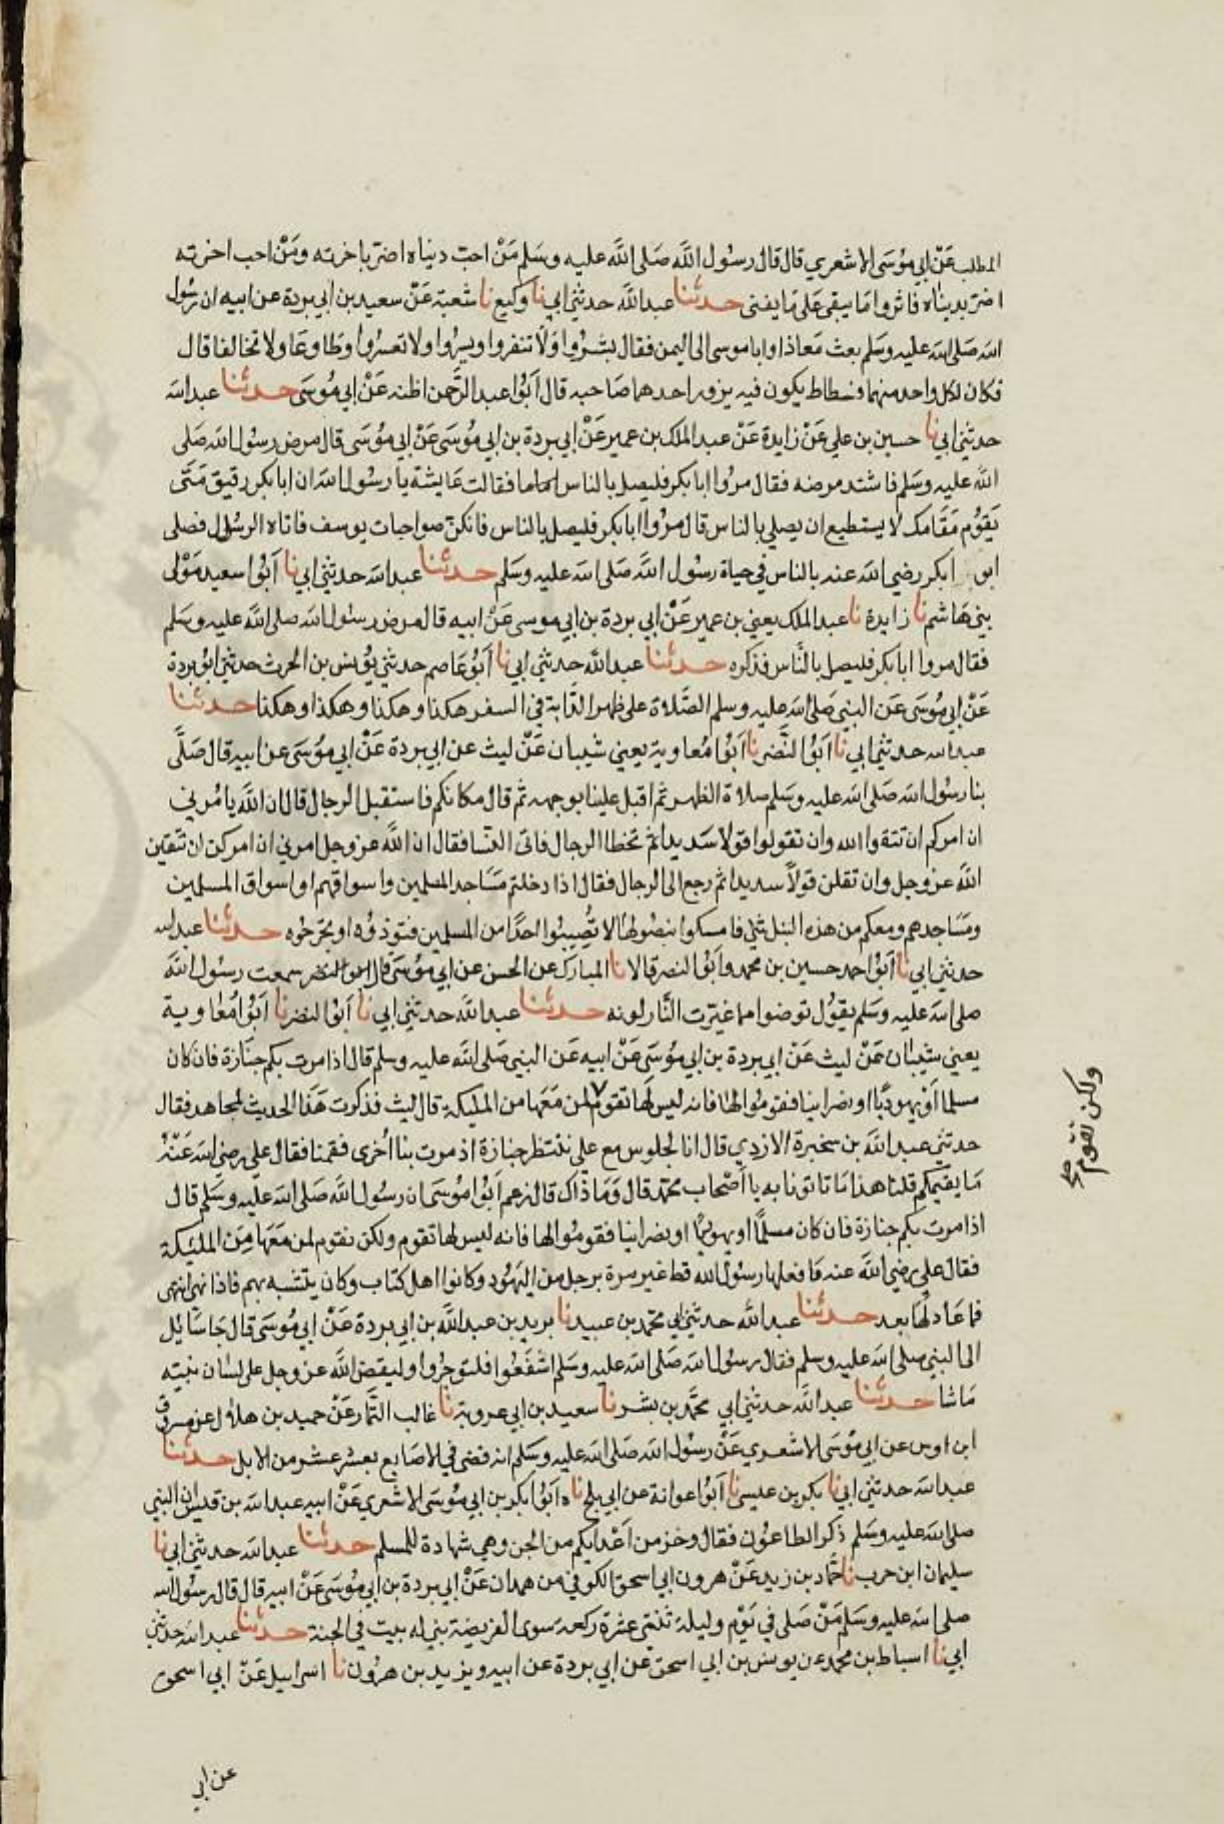 المطلب عن ابي موسى الاشعري قال قال رسول الله صلى الله عليه وسلم من احب دنياه اضر باخرته ومن احب اخرته
اضر بدنياه فاثروا ما يبقى على ما يفنى حدثنا عبد الله حدثني ابي نا وكيع نا شعبة عن سعيد بن ابي بردة عن ابيه ان رسول
الله صلى الله عليه وسلم بعث معاذا وابا موسى الى اليمن فقال بشروا ولا تنفروا ويسروا ولا تعسروا وتطاوعا ولا تخالفا قال
فكان لكل واحد منهما فسطاط يكون فيه يزور احدهما صاحبه قال ابو عبد الرحمن اظنه عن ابي موسى حدثنا عبد الله
حدثني ابي نا حسين بن علي عن زايدة عن عبد الملك بن عمير عن ابي بردة بن ابي موسى عن ابي موسى قال مرض رسول الله صلى
الله عليه وسلم فاشتد مرضه فقال مروا ابا بكر فليصل بالناس فقالت عايشة يا رسول الله ان ابا بكر رقيق متى
يقوم مقامك لا يستطيع ان يصلي بالناس قال مروا ابا بكر فليصل بالناس فانكن صواحبات يوسف فاتاه الرسول فصلى
ابو ابكر رضي الله عنه بالناس في حياة رسول الله صلى الله عليه وسلم حدثنا عبد الله حدثني ابي نا ابوا سعيد مولى
بني هاشم نا زايدة نا عبد الملك يعني بن عمير عن ابي بردة بن ابي موسى عن ابيه قال مرض رسول الله صلى الله عليه وسلم
فقال مروا ابا بكر فليصل بالناس فذكره حدثنا عبد الله حدثني ابي نا ابو عاصم حدثني يونس بن الحرث حدثني ابو بردة
عن ابي موسى عن النبي صلى الله عليه وسلم الصلاة على ظهر الدابة في السفر هكذا وهكذا وهكذا وهكذا حدثنا
عبد الله حدثني ابي نا ابوا النضر نا ابوا معاوية يعني شيبان عن ليث عن ابي بردة عن ابي موسى عن ابيه قال صلى
بنا رسول الله صلى الله عليه وسلم صلاة الظهر ثم اقبل علينا بوجهه ثم قال مكانكم فاستقبل الرجال قال ان الله يامرني
ان امركم ان تتقوا الله وان تقولوا قولا سديدا ثم تخطا الرجال فاتى النسا فقال ان الله عز وجل امرني ان امركن ان تتقين
الله عز وجل وان تقلن قولا سديدا ثم رجع الى الرجال فقال اذا دخلتم مساجد المسلمين واسواقهم او اسواق المسلمين
ومساجدهم ومعكم من هذه النبل شي فامسكوا بنصولها لا تصيبوا احدا من المسلمين فتوذوه او تجرحوه حدثنا عبد الله
حدثني ابي نا ابوا احمد حسين بن محمد وابوا النضر قالا نا المبارك عن الحسن عن ابي موسى قال ابو النضر سمعت رسول الله
صلى الله عليه وسلم يقول توضوا مما غيرت النار لونه حدثنا عبد الله حدثني ابي نا ابوا النضر نا ابوا معاوية
يعني شيبان عن ليث عن ابي بردة بن ابي موسى عن ابيه عن النبي صلى الله عليه وسلم قال اذا مرت بكم جنازة فان كان
مسلما او يهوديا او نصرانيا فقوموا لها فانه ليس لها تقوم لمن معها من المليكة قال ليث فذكرت هذا الحديث لمجاهد فقال
حدثني عبد الله بن سخبرة الازدي قال انا لجلوس مع علي ننتظر جنازة اذ مرت بنا اخرى فقمنا فقال علي رضي الله عنه
ما يقيمكم قلنا هذا ما تاتونا به يا اصحاب محمد قال وما ذاك قال زعم ابوا موسى ان رسول الله صلى الله عليه وسلم قال
اذا مرت بكم جنازة فان كان مسلما او يهوديا او نصرانيا فقوموا لها فانه ليس لها تقوم ولكن نقوم لمن معها من المليكة
فقال علي رضي الله عنه ما فعلها رسول الله قط غير مرة برجل من اليهود وكانوا اهل كتاب وكان يتشبه بهم فاذا نهى انتهى
فما عاد لها بعد حدثنا عبد الله حدثني ابي محمد بن عبيد نا بريد بن عبد الله بن ابي بردة عن ابي موسى قال جا سايل
الى النبي صلى الله عليه وسلم فقال رسول الله صلى الله عليه وسلم اشفعوا فلتوجروا وليقض الله عز وجل على لسان نبيه
ما شا حدثنا عبد الله حدثني ابي محمد بن بشر نا سعيد بن ابي عروبة نا غالب التمار عن حميد بن هلال عن مسروق
ابن اوس عن ابي موسى الاشعري عن رسول الله صلى الله عليه وسلم انه قضى في الاصابع بعشر عشر من الابل حدثنا
عبد الله حدثني ابي نا بكر بن عليسى نا ابوا عوانة عن ابي بلج نا ه ابوا بكر بن ابي موسى الاشعري عن ابيه عبد الله بن قيس ان النبي
صلى الله عليه وسلم ذكر الطاعون فقال وخز من اعدايكم من الجن وهي شهادة للمسلم حدثنا عبد الله حدثني ابي نا
سليمان ابن حرب نا حماد بن زيد عن هرون ابي اسحق الكوفي من همدان عن ابي بردة بن ابي موسى عن ابيه قال قال رسول الله
صلى الله عليه وسلم من صلى في يوم وليلة ثنتي عشرة ركعة سوى الفريضة بني له بيت في الجنة حدثنا عبد الله حدثني
ابي نا اسباط بن محمد عن يونس بن ابي اسحق عن ابي بردة عن ابيه ويزيد بن هرون نا اسرائيل عن ابي اسحق
عن ابي
ولكن نقوم صح